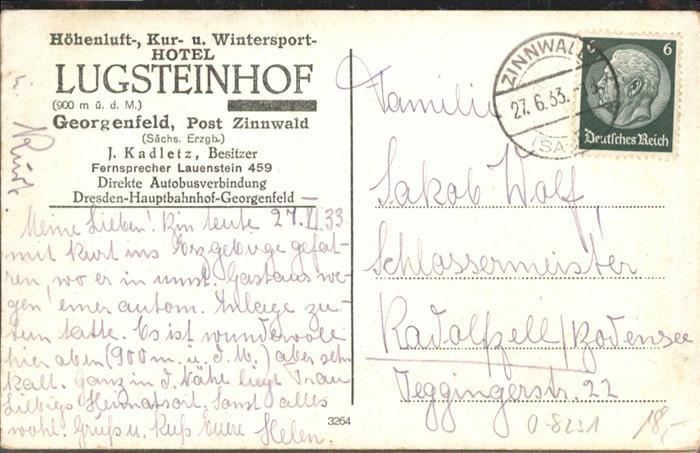 Höhenluft-, Kur- u. Wintersport-
HOTEL
LUGSTEINHOF
(900 m ü. d. M.)
Georgenfeld, Post Zinnwald
(Sächs. Erzgb.)
J. Kadletz, Besitzer
Fernsprecher Lauenstein 459
Direkte Autobusverbindung
Dresden-Hauptbahnhof-Georgenfeld
Kurt.
Meine Lieben! Bin heute 27.VI.33
mit Kurt ins Erzgebirge gefah-
ren, wo er in umst. Gasthaus we-
gen einer autom. Anlage zu-
tun hatte. Es ist wundervoll
hier oben (900 m. ü. d. M.) aber sehr
kalt. Ganz in d. Nähe liegt Frau
Liebigs Heimatsort. Sonst alles
wohl. Gruß u. Kuß Euere Helen.
3264
ZINNWALD
27.6.33.
(SA
6 6
Deutsches Reich
Familie
Jakob Wolf,
Schlossermeister
Radolfzell/Bodensee
Teggingerstr. 22
0-8231
18,-